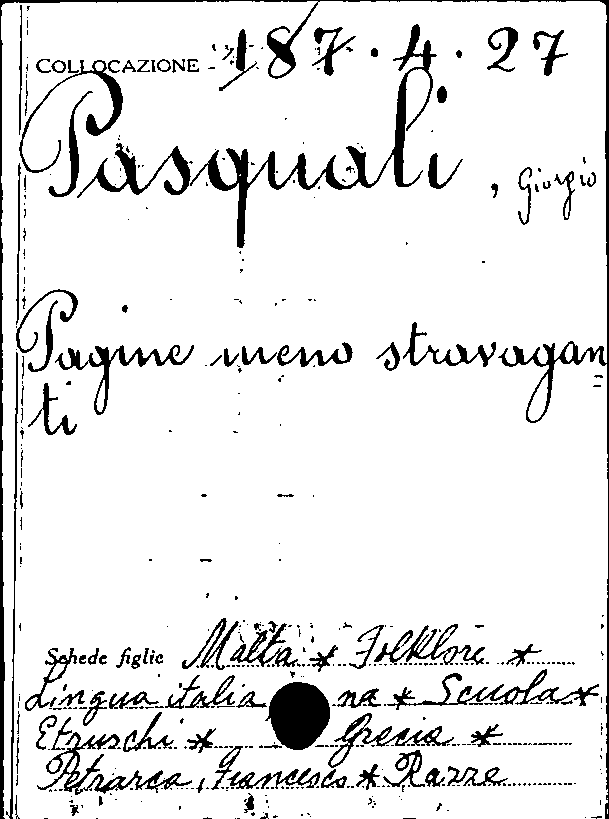 COLLOCAZIONE - 187.4.27
Pasquali, Giorgio
Pagine meno stravagan=
ti
Schede figlie Malta * Folklore *
Lingua italiana * Scuola *
Etruschi * Grecia *
Petrarca, Francesco * Razze